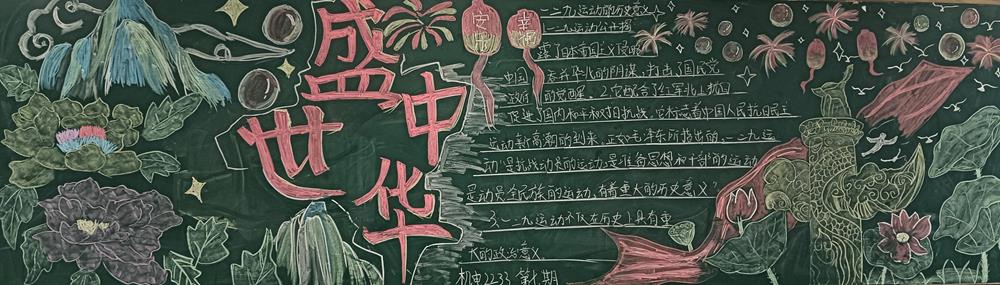 盛世
中华
一二·九运动的历史意义
1.一二九运动公开揭
露了日本帝国主义侵略
中国,吞并华北的阴谋,打击了国民党
政府 的 2.它配合了红军北上抗日
促进了国内和平和对日抗战,它标志着中国人民抗日民主
运动新高潮的到来,正如毛泽东所指出的,一二·九运
动"是抗战动员的运动,是准备思想和干部的运动
是动员全民族的运动,有着重大的历史意义"
3.一二·九运动不仅在历史上具有重
大的政治意义
机电2233 第1期